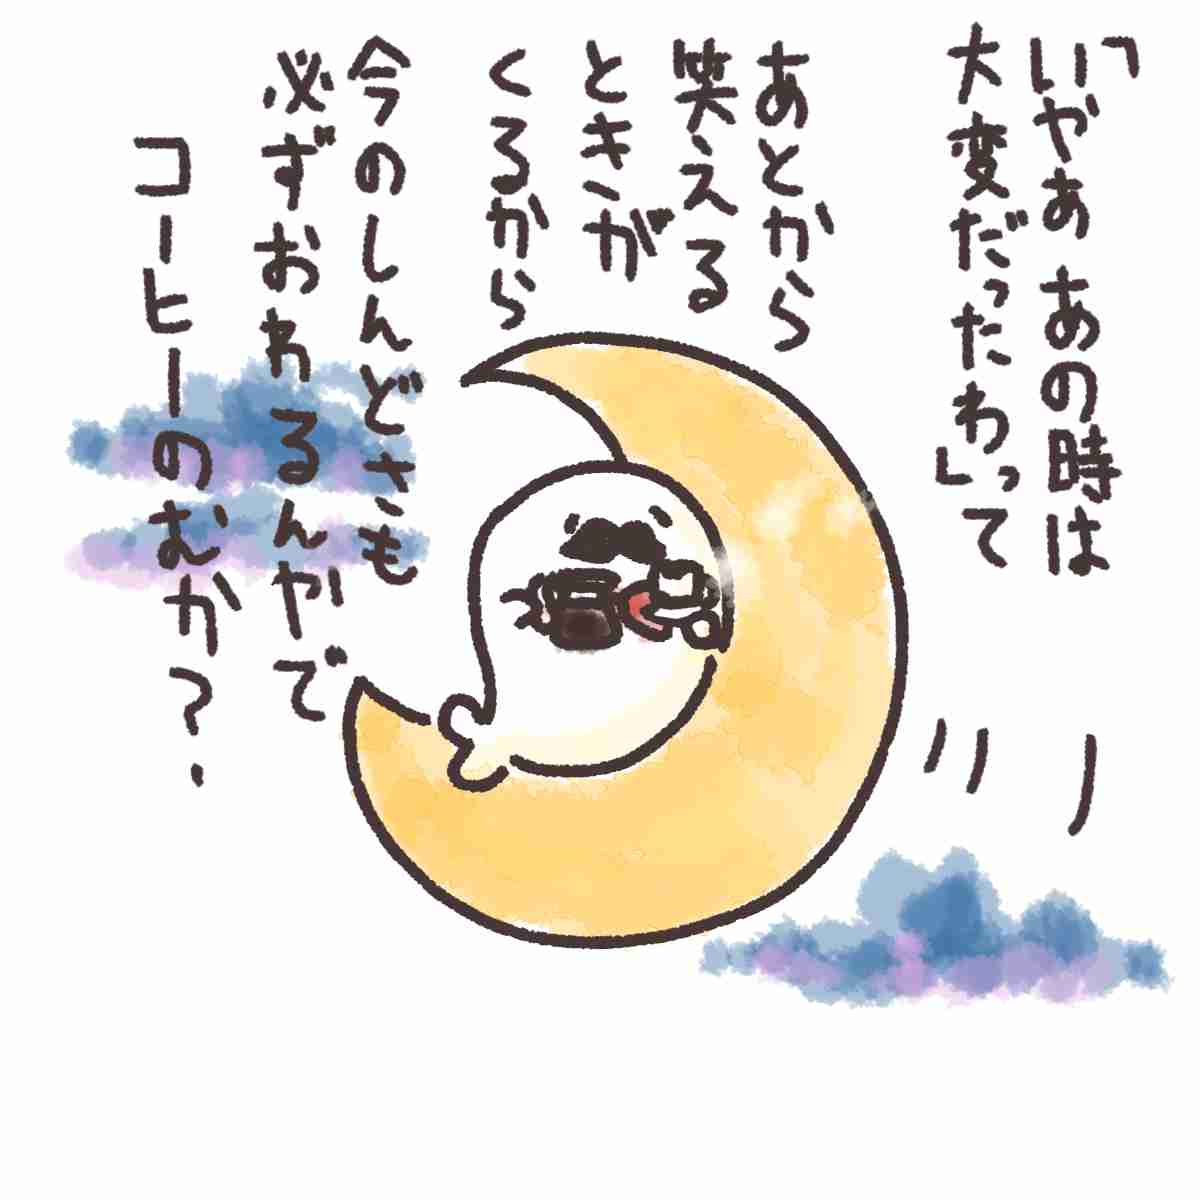 「いやぁ あの時は
大変だったわ」って
あとから
笑える
ときが
くるから
今のしんどさも
必ずおわるんやで
コーヒーのむか?